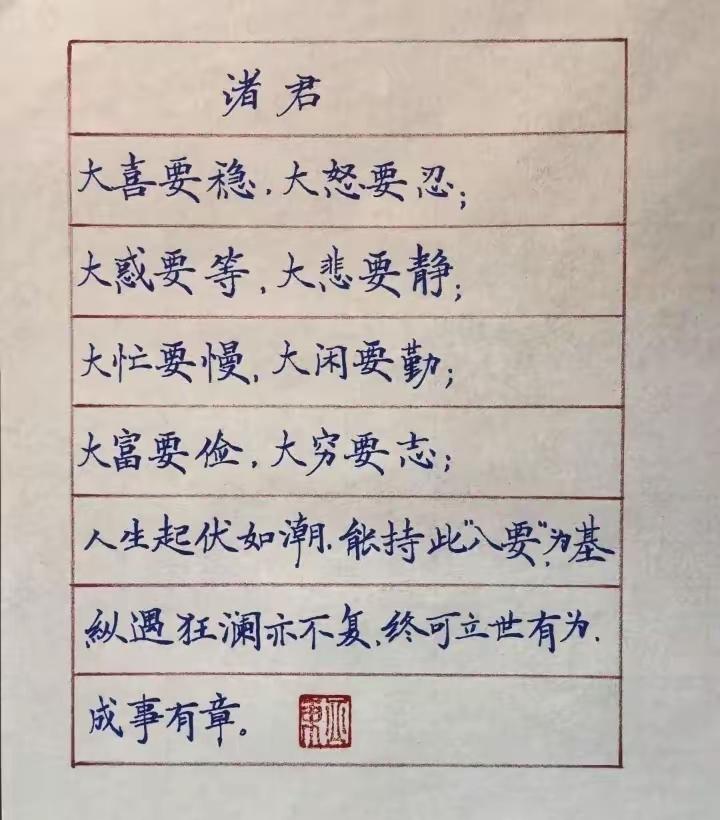 渚君
大喜要稳，大怒要忍；
大惑要等，大悲要静；
大忙要慢，大闲要勤；
大富要俭，大穷要志；
人生起伏如潮，能持此“八要”为基，
纵遇狂澜亦不复，终可立世有为，
成事有章。